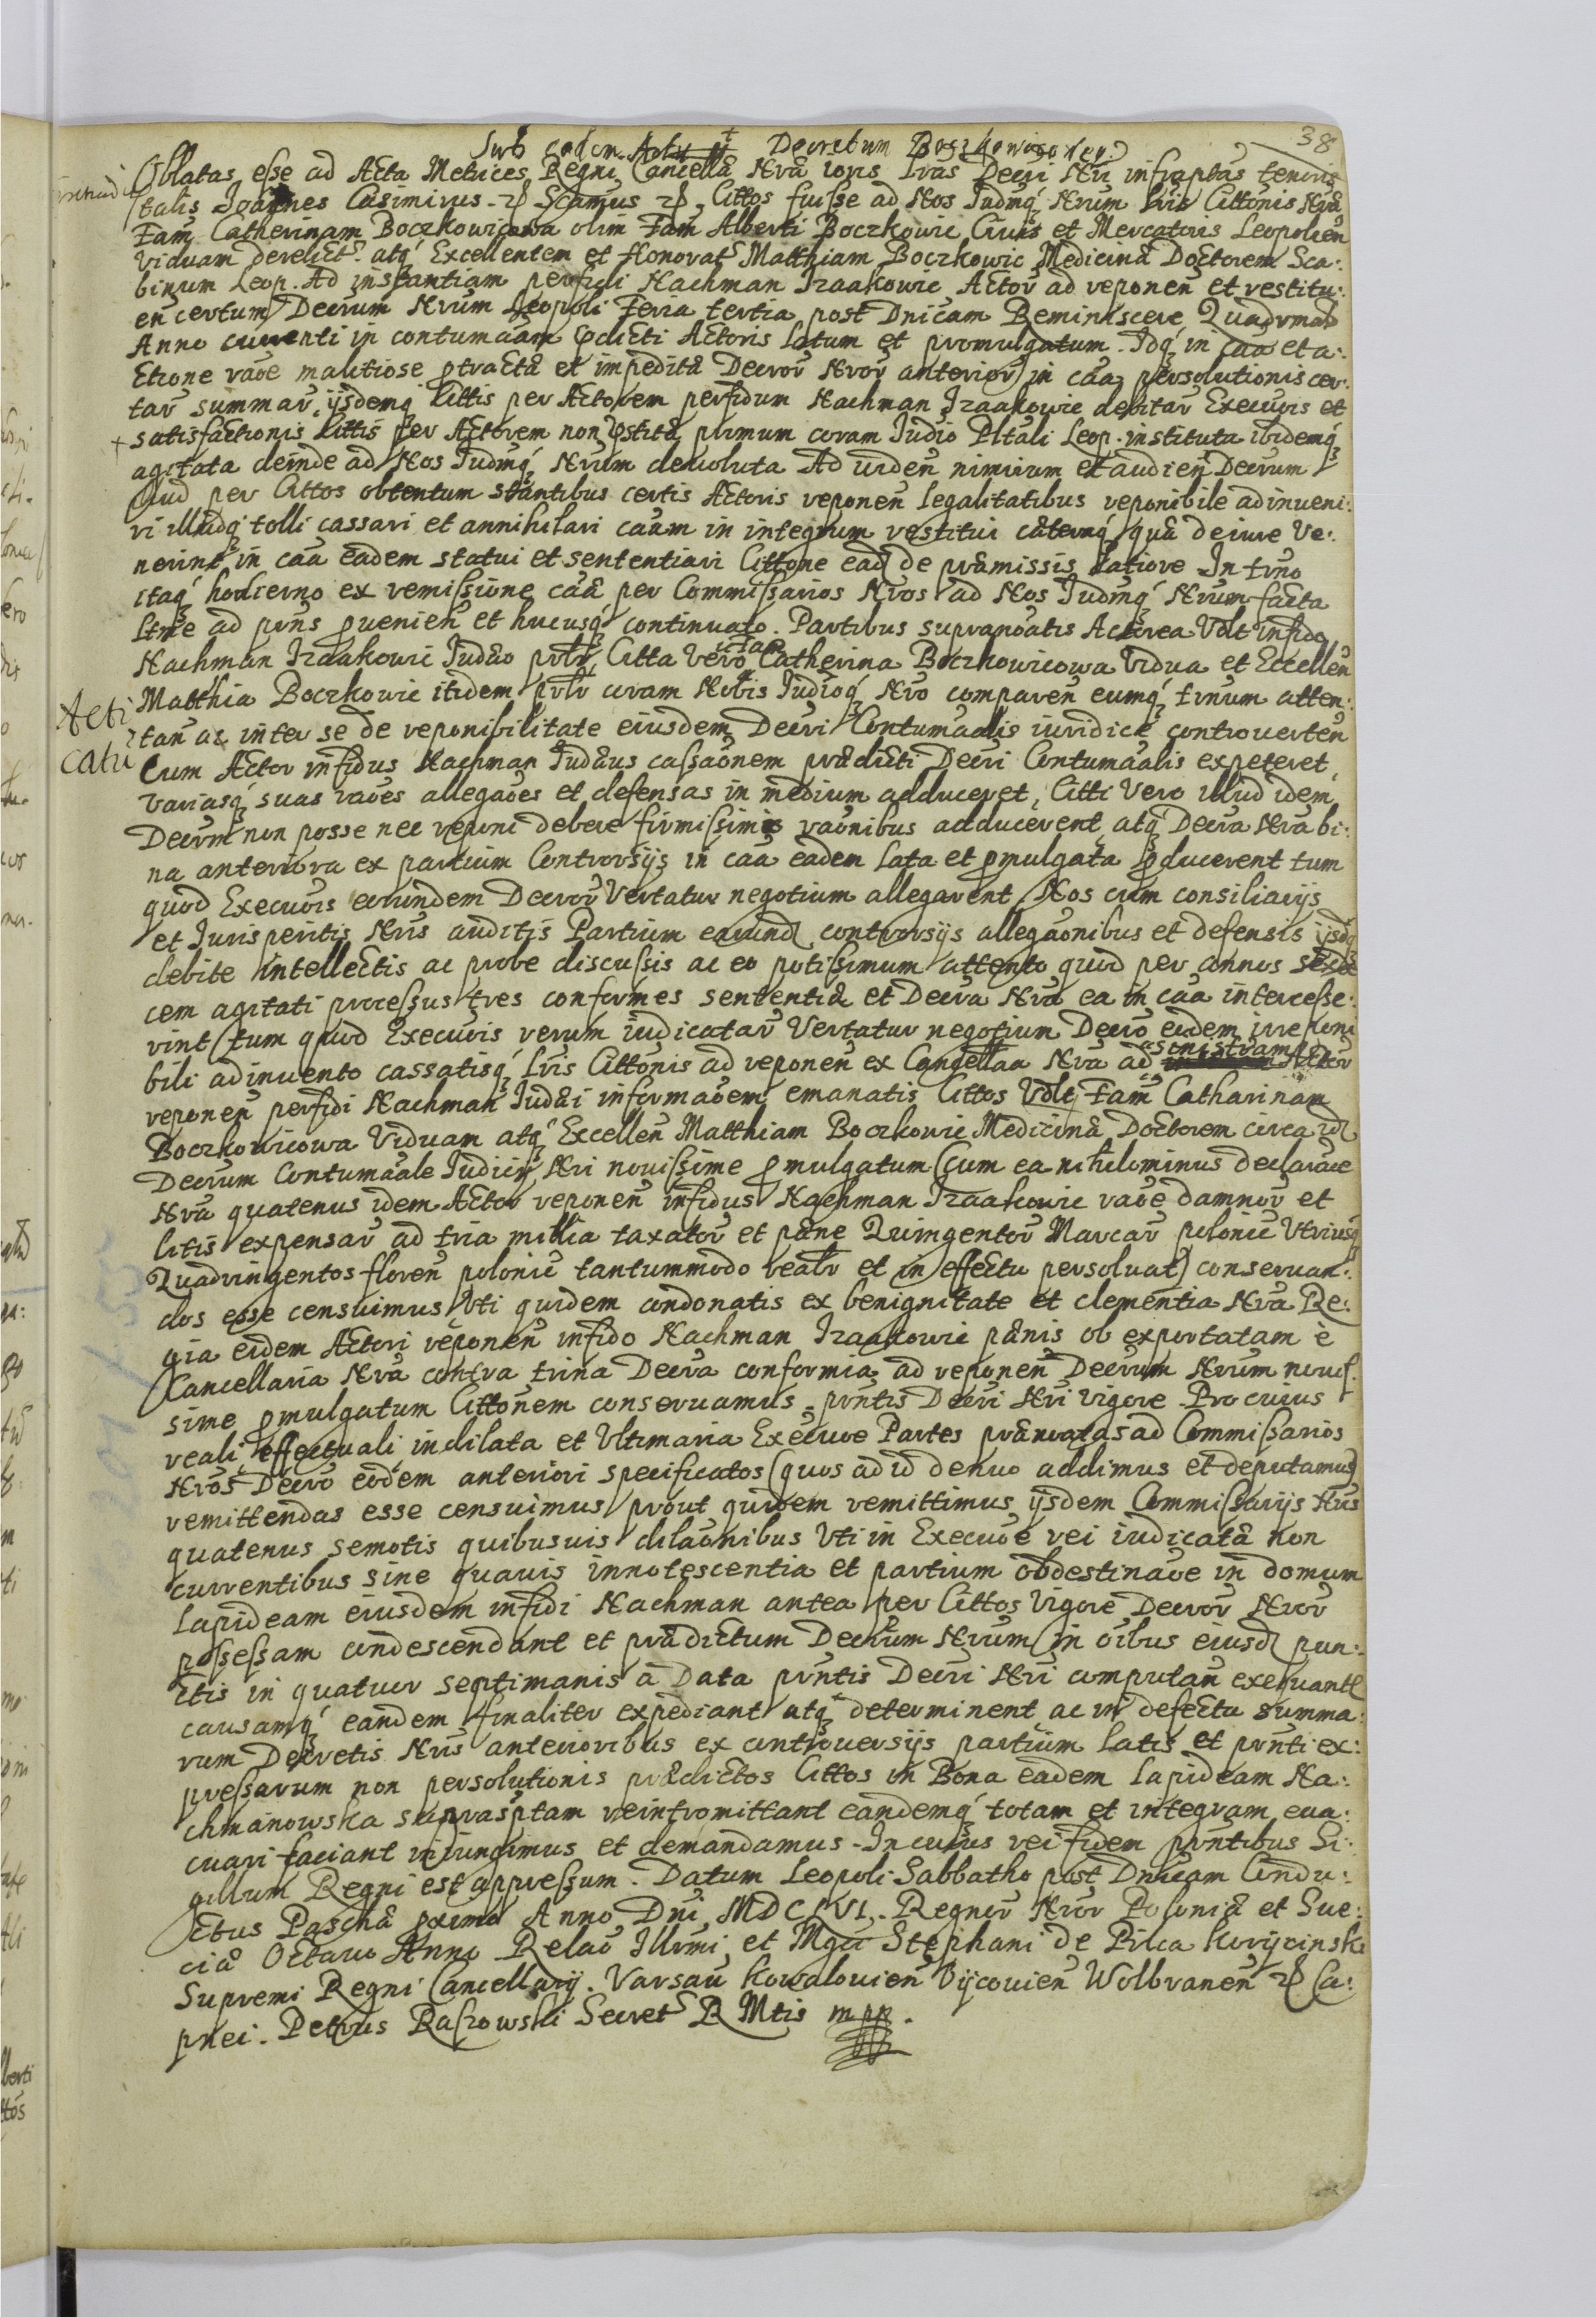 38
Sub eodem Actu Decretum Boczkowicowey
Oblatas esse ad Acta Metrices Regni Cancellae Nrae ioris lras Decri Nri infraptas tenoris
talis Joannes Casimirus Scimus Cittos fuisse ad Nos Judmq Nrum lris Cittonis Nrae
Fam Catherinam Boczkowicowa olim Fam Alberti Boczkowic Ciuis et Mercatoris Leopolien
Viduam derelict. atq Excellentem et Honorat Matthiam Boczkowic Medicinae Doctorem Sca:
binum Leop. Ad instantiam perfidi Nachman Izaakowic Actor ad reponen et restitu:
en certum Decrum Nrum Leopoli Feria tertia post Dnicam Reminiscere Quadrmal
Anno currenti in contumaciam pdicti Actoris latum et promulgatum. Idq in caa et a:
ctione raoe malitiose ptractae et impeditae Decror Nror anterior in caa persolutionis cer:
tar summar ijsdemq Cittis per Actorem perfidum Nachman Izaakowic debitar Execuois et
+ satisfactionis Cittis per Actorem non pstitae primum coram Judio Pltali Leop. instituta ibidemq
agitata deinde ad Nos Judmq Nrum deuoluta Ad uiden nimirum et audien Decrum
Illud per Cittos obtentum stantibus certis Actoris reponen legalitatibus reponibile adinueni:
ri illudq tolli cassari et annihilari caam in integrum restitui caeteraq quae de iure Ve:
nerint in caa eadem statui et sententiari Cittone ead de praemissis latiore In trno
itaq hodierno ex remissione caae per Commissarios Nros ad Nos Judmq Nrum facta
lime ad prns puenien et hucusq continuato. Partibus supranoatis Actorea Vdlt infido
Nachman Izaakowic Judaeo prlr, Citta Vero Fam Catherina Boczkowicowa Vidua et Excellen
Matthia Boczkowic itidem prlr coram Nobis Judioq Nro comparen eumq trnum atten:
Acti
catu
tan ac inter se de reponibilitate eiusdem Decri Contumacialis iuridice controuerten
Cum Actor infidus Nachman Judaeus cassaonem praedicti Decri Contumacialis expeteret,
Variasq suas raoes allegaoes et defensas in medium adduceret, Citti Vero illud idem
Decrum non posse nec reponi debere firmissimis raonibus adducerent, atq Decra Nra bi:
na anteriora ex partium Controrsijs in caa eadem lata et pmulgata pducerent tum
quod Execuois eorundem Decror Vertatur negotium allegarent Nos cum consiliarijs
et Jurisperitis Nris auditis Partium earund controrsijs allegaonibus et defensis ijsdq
debite intellectis ac probe discussis ac eo potissimum attento quod per annos sede
cem agitati processus tres conformes sententiae et Decra Nra ea in caa intercesse:
rint, tum quod Execuois rerum iudicatar Vertatur negotium Decro eodem irreponi
bili adinuento cassatisq lris Cittonis ad reponen ex Cancellaa Nra ad sinistram Actor
reponen perfidi Nachman Judaei informaoem emanatis Cittos Vdlt Fam Catharinam
Boczkowicowa Viduam atq Excellen Matthiam Boczkowic Medicinae Doctorem circa id
Decrum Contumaciale Judicij Nri nouissime pmulgatum (cum ea nihilominus declaraoe
Nra quatenus idem Actor reponen infidus Nachman Izaakowic raoe damnor et
litis expensar ad tria millia taxator et paene Quingentor Marcar polonic Vtriusq
Quadringentos floren polonic tantummodo realr et in effectu persoluat) conseruan:
dos esse censuimus Vti quidem condonatis ex benignitate et clementia Nra Re:
gia eidem Actori reponen infido Nachman Izaakowic paenis ob exportatam e
Cancellaria Nra contra trina Decra conformia ad reponen Decrum Nrum nouis
sime pmulgatum Cittonem conseruamus, prntis Decri Nri Vigore. Pro cuius
reali, effectuali indilata et Vltimaria Execuoe Partes praenoatas ad Commissarios
Nros Decro eodem anteriori specificatos (quos ad id denuo addimus et deputamus)
remittendas esse censuimus prout quidem remittimus ijsdem Commissarijs Nris
quatenus semotis quibusuis dilaonibus Vti in Execuoe rei iudicatae non
currentibus sine quauis innotescentia et partium obdestinaoe in domum
lapideam eiusdem infidi Nachman antea per Cittos Vigore Decror Nror
possessam condescendant et praedictum Decrum Nrum in oibus eiusd pun:
ctis in quatuor septimanis a Data prntis Decri Nri computan exequantr
causamq eandem finaliter expediant atq determinent ac in defectu summa:
rum Decretis Nris anterioribus ex controuersijs partium latis et prnti ex:
pressarum non persolutionis praedictos Cittos in Bona eadem lapideam Na:
chmanowska suprasptam reintromittant eandemq totam et integram eua:
cuari faciant iniungimus et demandamus. In cuius rei fidem prntibus Si:
gillum Regni est appressum. Datum Leopoli Sabbatho post Dnicam Condu:
ctus Paschae pxima Anno Dni MDCLVI. Regnor Nror Poloniae et Sue:
ciae Octauo Anno Relao Illrmi et Mgci Stephani de Pilca Korycinski
Supremi Regni Cancellarij. Varsau Kowalouien Oijcouien Wolbramen Ca:
pnei. Petrus Raszowski Secret R Mtis mpp.